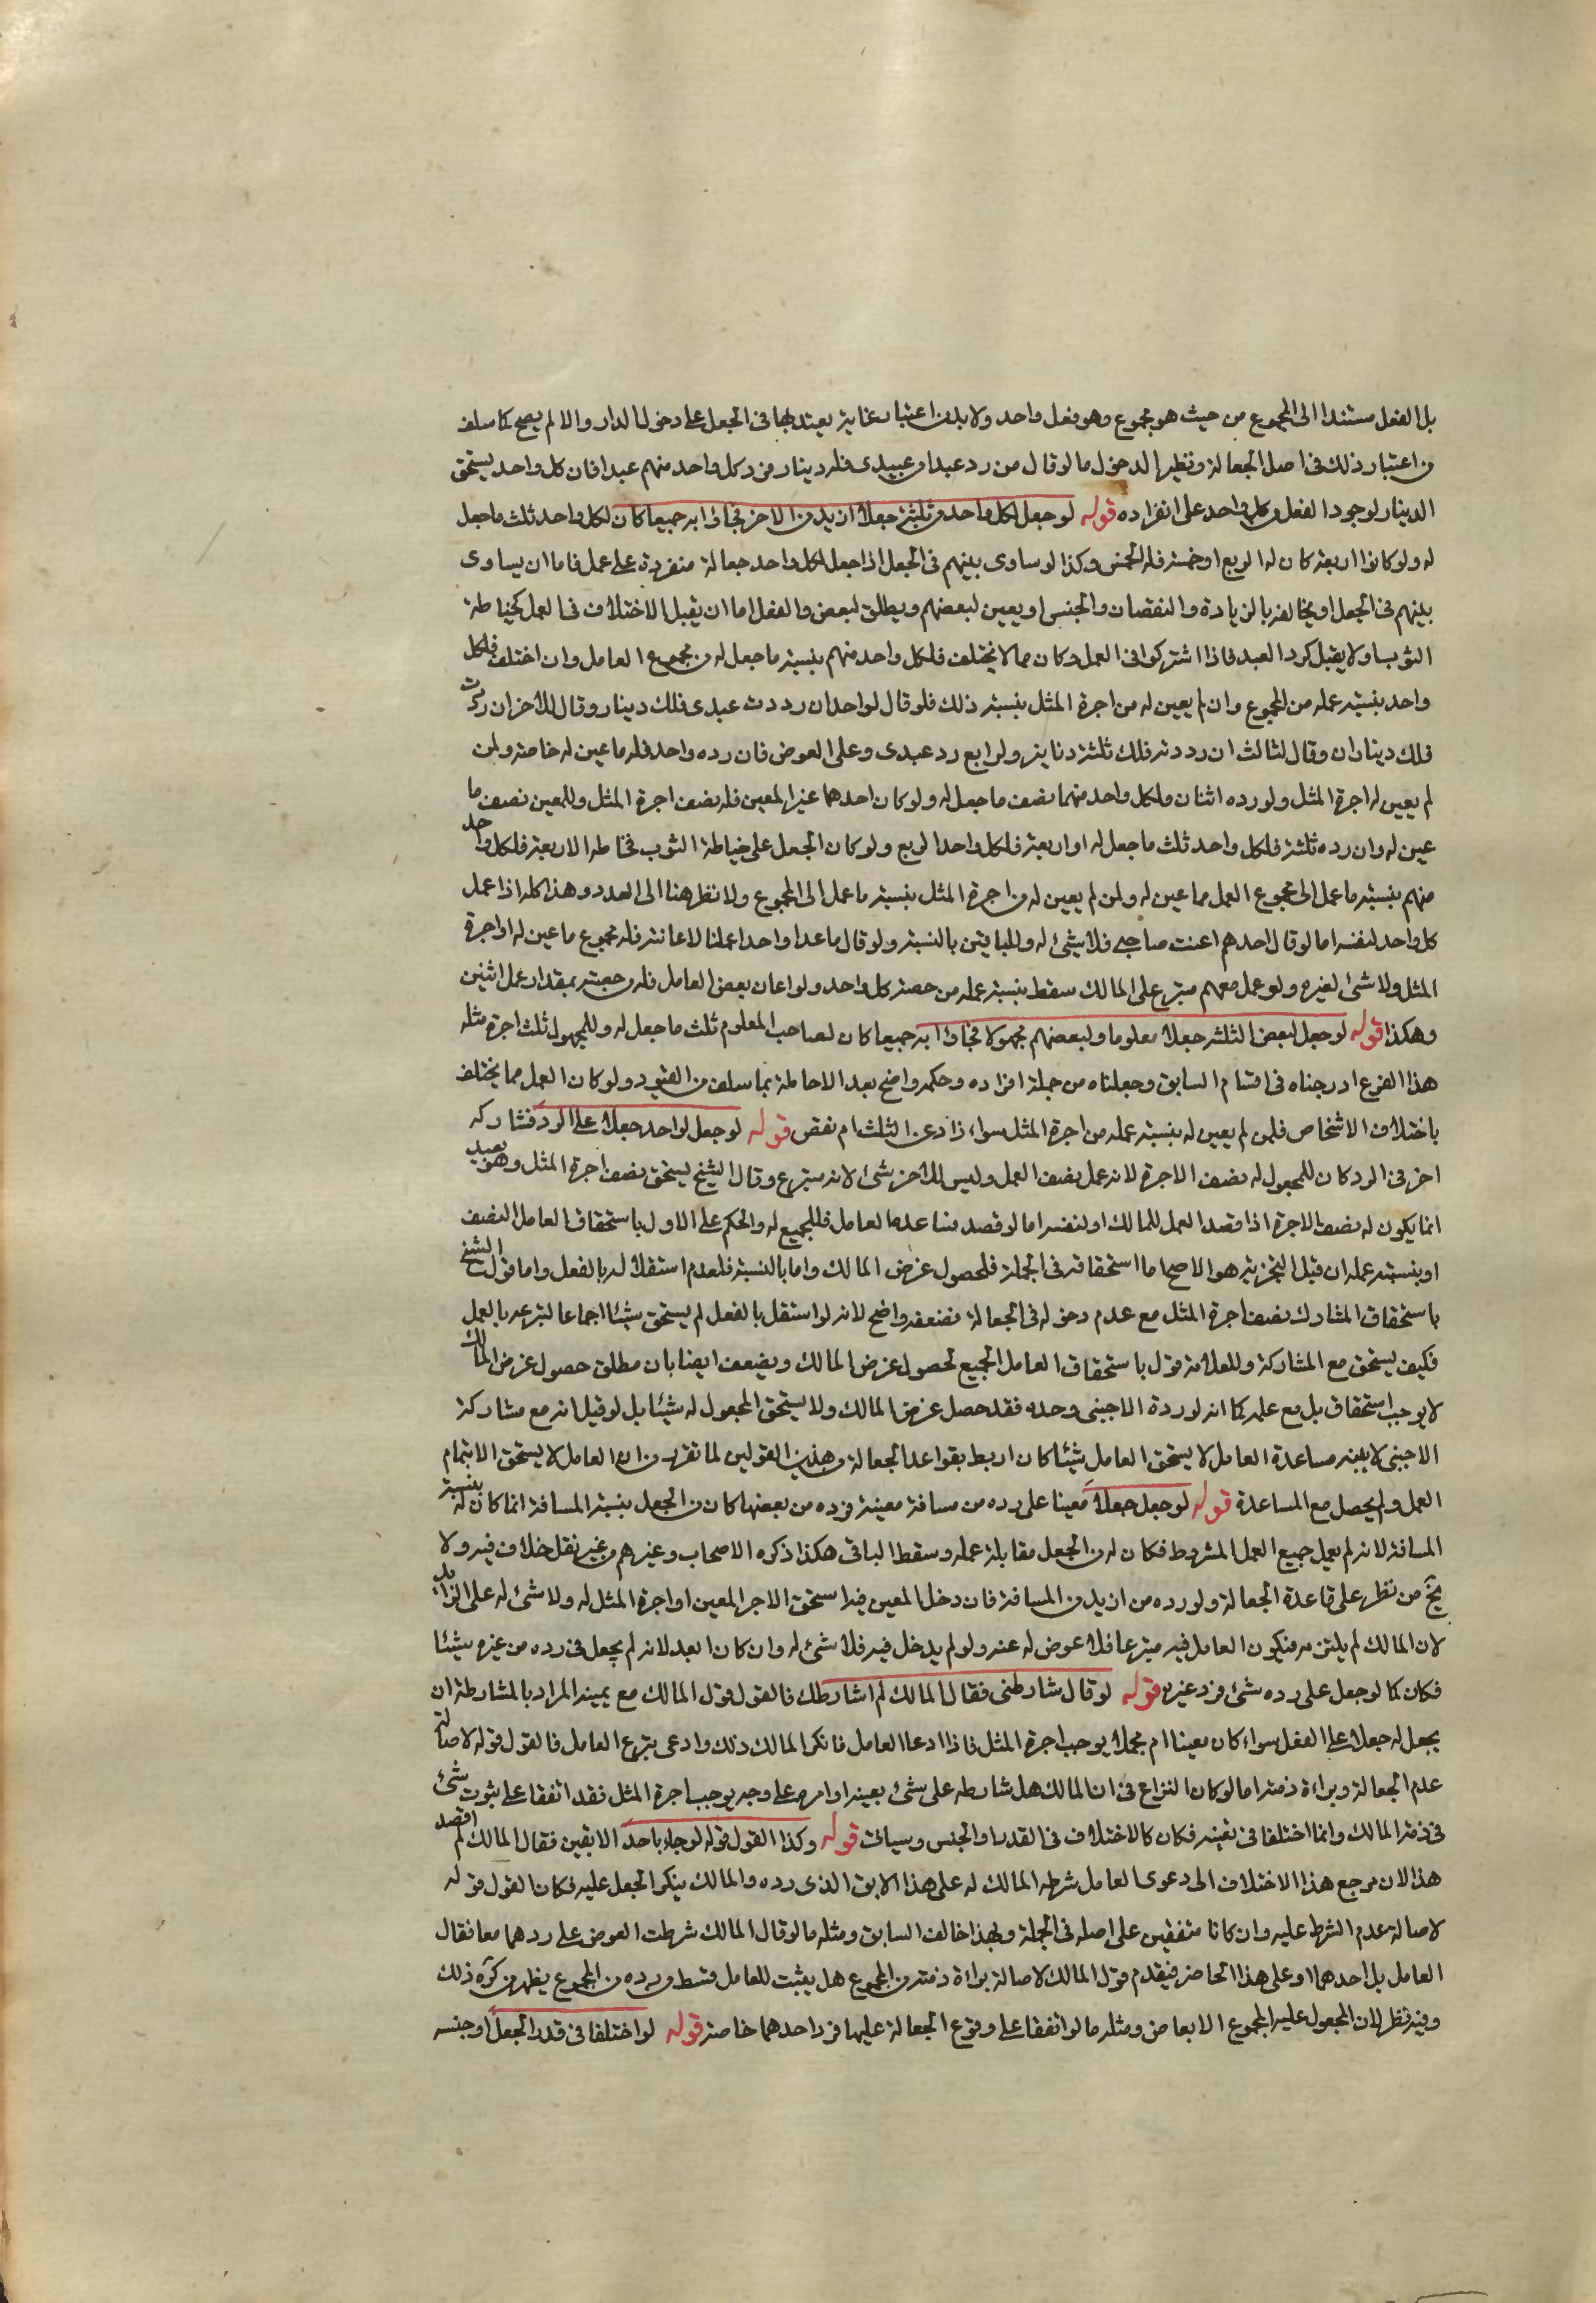 بل الفعل مستندا الى المجموع من حيث هو مجموع وهو فعل واحد ولا بد من اعتبار غاية يعتد بها فى الجعل على دخول الدار والا لم يصح كما سلف
من اعتبار ذلك فى اصل الجعالة ونظير الدخول ما لو قال من رد عبدا من عبيدى فله دينار فرد كل واحد منهم عبدا فان كل واحد يستحق
الدينار لوجود الفعل من كل واحد على انفراده قوله لو جعل لكل واحد من ثلثة جعلا ازيد من الاخر فجاؤا به جميعا كان لكل واحد ثلث ما جعل
له ولو كانوا اربعة كان له الربع او خمسة فله الخمس وكذا لو ساوى بينهم فى الجعل اذا جعل لكل واحد جعالة منفردة على عمل فاما ان يساوى
بينهم فى الجعل او يخالف بالزيادة والنقصان والجنس او يعين لبعضهم ويطلق لبعض والفعل اما ان يقبل الاختلاف فى العمل كخياطة
الثوب او لا يقبل كرد العبد فاذا اشتركوا فى العمل وكان مما لا يختلف فلكل واحد منهم بنسبة ما جعل له من مجموع العامل وان اختلف فلكل
واحد بنسبة عمله من المجموع وان لم يعين له من اجرة المثل بنسبة ذلك فلو قال لواحد ان رددت عبدى فلك دينار وقال للاخر ان رددت
فلك ديناران وقال لثالث ان رددته فلك ثلثة دنانير ولرابع رد عبدى وعلى العوض فان رده واحد فله ما عين له خاصة ولمن
لم يعين له اجرة المثل ولو رده اثنان فلكل واحد منهما نصف ما جعل له ولو كان احدهما غير المعين فله نصف اجرة المثل وللمعين نصف ما
عين له وان رده ثلثة فلكل واحد ثلث ما جعل له او اربعة فلكل واحد الربع ولو كان الجعل على خياطة الثوب فخاطه الاربعة فلكل واحد
منهم بنسبة ما عمل الى مجموع العمل مما عين له ولمن لم يعين له من اجرة المثل بنسبة ما عمل الى المجموع ولا نظر هنا الى العدد وهذا كله اذا عمل
كل واحد لنفسه اما لو قال احدهم اعنت صاحبى فلا شئ له وللباقين بالنسبة ولو قال ما عدا واحدا عملنا لاعانته فله مجموع ما عين له او اجرة
المثل ولا شئ لغيره ولو عمل معهم متبرع على المالك سقط بنسبة عمله من حصة كل واحد ولو اعان بعض العامل فله من حصته بمقدار عمل اثنين
وهكذا قوله لو جعل لبعض الثلثة جعلا معلوما ولبعضهم مجهولا فجاؤا به جميعا كان لصاحب المعلوم ثلث ما جعل له وللمجهول ثلث اجرة مثله
هذا الفرع ادرجناه فى اقسام السابق وجعلناه من جملة افراده وحكمه واضح بعد الاحاطة بما سلف من القيود ولو كان العمل مما يختلف
باختلاف الاشخاص فلمن لم يعين له بنسبة عمله من اجرة المثل سواء زاد عن الثلث ام نقص قوله لو جعل لواحد جعلا على الرد فشاركه
اخر فى الرد كان للمجعول له نصف الاجرة لانه عمل نصف العمل وليس للاخر شئ لانه متبرع وقال الشيخ يستحق نصف اجرة المثل وهو بعيد
انما يكون له نصف الاجرة اذا قصد العمل للمالك او لنفسه اما لو قصد مساعدة العامل فالجميع له والحكم على الاول باستحقاق العامل النصف
او بنسبة عمله ان قبل التجزية هو الاصح اما استحقاقه فى الجملة فلحصول غرض المالك واما بالنسبة فلعدم استقلاله بالفعل واما قول الشيخ
باستحقاق المشارك نصف اجرة المثل مع عدم دخوله فى الجعالة فضعفه واضح لانه لو استقل بالفعل لم يستحق شيئا اجماعا لتبرعه بالعمل
فكيف يستحق مع المشاركة وللعلامة قول باستحقاق العامل الجميع لحصول غرض المالك ويضعف ايضا بان مطلق حصول غرض المالك
لا يوجب استحقاق بل مع عمله كما انه لو رده الاجنبى وحده فقد حصل غرض المالك ولا يستحق المجعول له شيئا بل لو قيل انه مع مشاركة
الاجنبى لا بنية مساعدة العامل لا يستحق العامل شيئا كان اربط بقواعد الجعالة من هذين القولين لما تقرر من ان العامل لا يستحق الا بتمام
العمل ولم يحصل مع المساعدة قوله لو جعل جعلا معينا على رده من مسافة معينة فرده من بعضها كان من الجعل بنسبة المسافة انما كان له بنسبة
المسافة لانه لم يعمل جميع العمل المشروط فكان له من الجعل مقابلة عمله وسقط الباقى هكذا ذكره الاصحاب وغيرهم من غير نقل خلاف فيه ولا
يخ من نظر على قاعدة الجعالة ولو رده من ازيد من المسافة فان دخل المعين فيه استحق الاجر المعين او اجرة المثل له ولا شئ له على الزايد
لان المالك لم يلتزمه فيكون العامل فيه متبرعا فلا عوض له عنه ولو لم يدخل فيه فلا شئ له وان كان ابعد لانه لم يجعل فى رده من غيره شيئا
فكان كما لو جعل على رده شئ فرد غيره قوله لو قال شارطنى فقال المالك لم اشارطك فالقول قول المالك مع يمينه المراد بالمشارطة ان
يجعل له جعلا على الفعل سواء كان معينا ام مجملا يوجب اجرة المثل فاذا ادعا العامل فانكر المالك ذلك وادعى تبرع العامل فالقول قوله لاصالة
عدم الجعالة وبراءة ذمته اما لو كان النزاع فى ان المالك هل شارطه على شئ بعينه او امره على وجه يوجب اجرة المثل فقد اتفقا على ثبوت شئ
فى ذمة المالك وانما اختلفا فى تعينه فكان كالاختلاف فى القدر والجنس وسياتى قوله وكذا القول قوله لو جاء باحد الابقين فقال المالك لم اقصد
هذا لان مرجع هذا الاختلاف الى دعوى العامل شرط المالك له على هذا الابق الذى رده والمالك ينكر الجعل عليه فكان القول قوله
لاصالة عدم الشرط عليه وان كانا متفقين على اصله فى الجملة وبهذا خالف السابق ومثله ما لو قال المالك شرطت العوض على ردهما معا فقال
العامل بل احدهما او على هذا الحاضر فيقدم قول المالك لاصالة براءة ذمته من المجموع هل يثبت للعامل قسط من رده من المجموع يظهر من كره ذلك
وفيه نظر لان المجعول عليه المجموع لا الابعاض ومثله ما لو اتفقا على وقوع الجعالة عليهما فرد احدهما خاصة قوله لو اختلفا فى قدر الجعل او جنسه